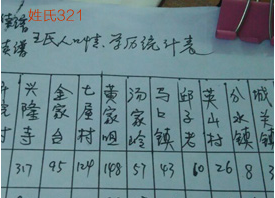 姓氏321
王氏人口情、学历统计表
兴隆寺 金家台 七屋村 黄家咀 汤家岭 马口镇 邱子老 英山村 分水镇 城关镇
317 95 124 148 57 43 60 26 8 3